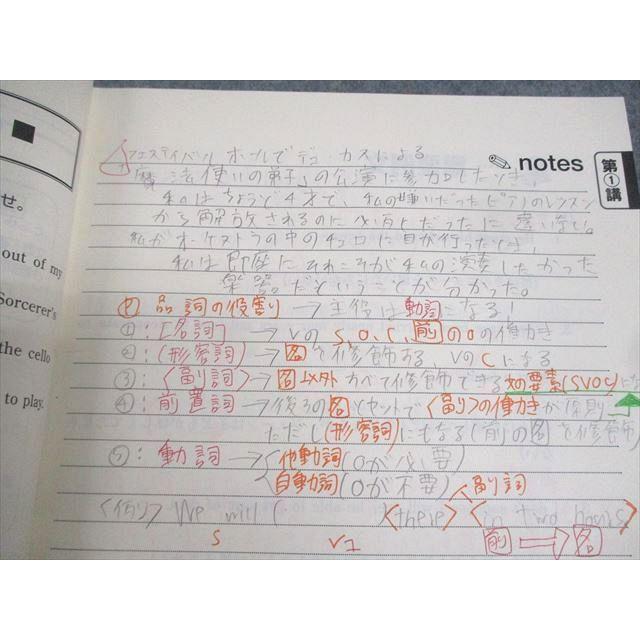 notes
第①講
せ。
out of my
Sorcerer's
the cello
to play.
フェスティバルホールでデュカスによる
「魔法使いの弟子」の公演に参加したとき、
私はちょうど4才で、私の嫌いだったピアノのレッスン
から解放されるのに必死だったに違いない。
私がオーケストラの中のチェロに目が行ったとき、
私は即座にそれこそが私の演奏したかった
楽器だということが分かった。
品詞の役割り→主役は動詞になる!
①:[名詞]→Vの S, O, C, 前のOの働き
②:(形容詞)→名を修飾する、VのCになる
③:〈副詞〉→名以外すべて修飾できる 文の要素(SVOC)に
④:前置詞→後ろの名とセットで〈副〉の働きが原則
ただし(形容詞)にもなる(前の名を修飾)
⑤:動詞→他動詞(Oが必要)
自動詞(Oが不要) 副詞
〈例〉We will ( 〈there〉〈in two hours〉
S V1 前⇒名